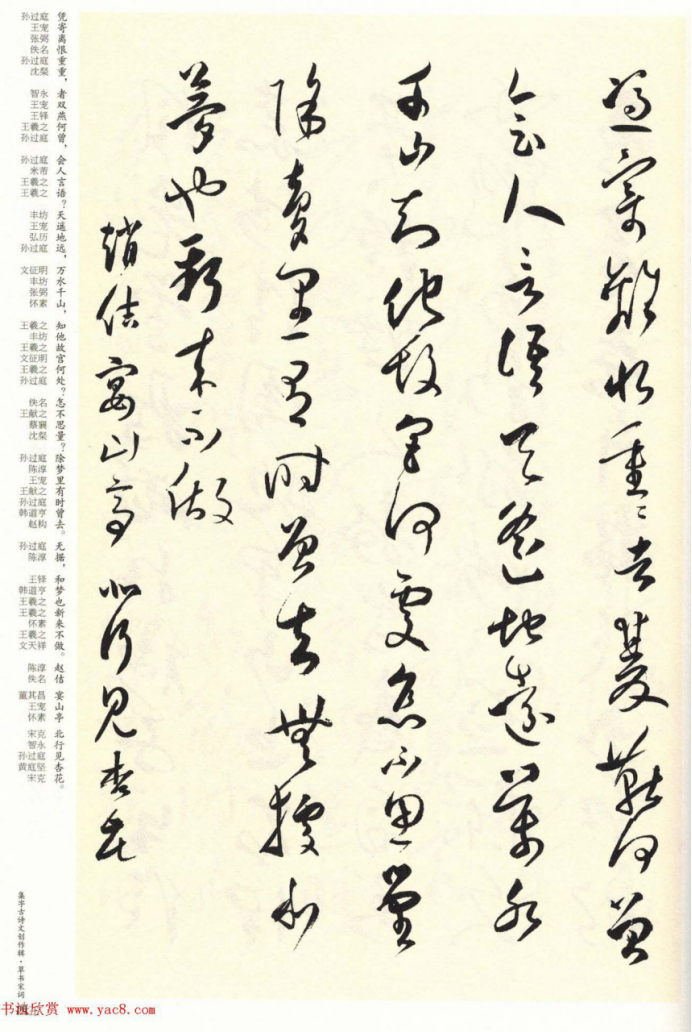 憑寄離恨重重者雙燕何曾
會人言語天遙地遠萬水
千山知他故宮何處怎不思量
除夢里有時曾去無據和
夢也新來不做
趙佶宴山亭北行見杏花
凭寄离恨重重，者双燕何曾，会人言语？天遥地远，万水千山，知他故宫何处？怎不思量？除梦里有时曾去。无据，和梦也新来不做。赵佶 宴山亭 北行见杏花。
孙过庭
王宠
张弼
佚名
孙过庭
沈粲
智永
王宠
王铎
王羲之
孙过庭
孙过庭
米芾
王羲之
王羲之
丰坊
王宠
弘历
孙过庭
文征明
丰坊
张弼
怀素
王羲之
丰坊
王羲之
文征明
王羲之
孙过庭
佚名
王献之
蔡襄
沈粲
孙过庭
陈淳
王宠
王献之
孙过庭
韩道亨
赵构
孙过庭
陈淳
王铎
韩道亨
王羲之
王羲之
怀素
王羲之
文天祥
陈淳
佚名
董其昌
王宠
怀素
宋克
智永
孙过庭
黄庭坚
宋克
集字古诗文创作辑·草书宋词
书法欣赏 www.yac8.com